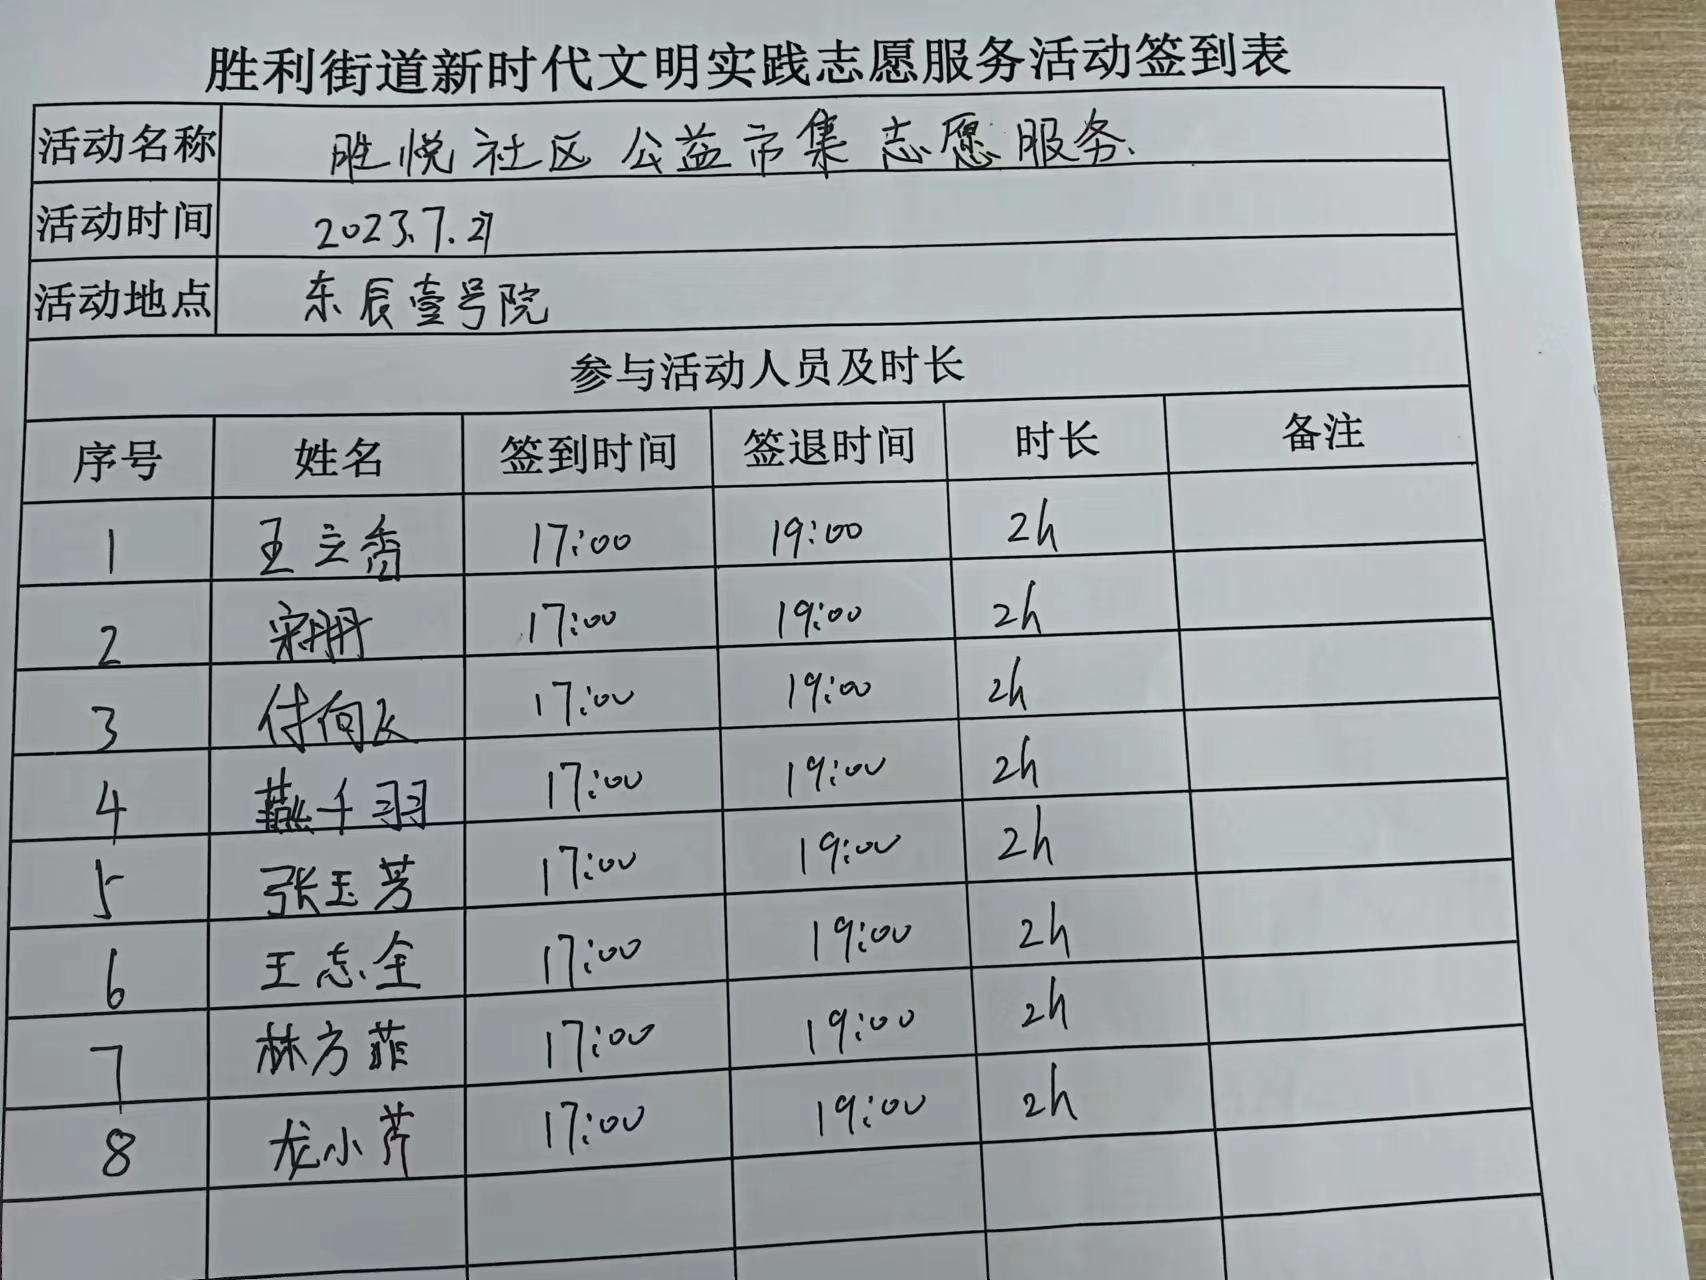 胜利街道新时代文明实践志愿服务活动签到表
活动名称 胜悦社区公益市集志愿服务.
活动时间 2023.7.21
活动地点 东辰壹号院
参与活动人员及时长
序号 姓名 签到时间 签退时间 时长 备注
1 王立香 17:00 19:00 2h
2 宋丹丹 17:00 19:00 2h
3 付向 17:00 19:00 2h
4 燕千羽 17:00 19:00 2h
5 张玉芳 17:00 19:00 2h
6 王志全 17:00 19:00 2h
7 林方菲 17:00 19:00 2h
8 龙小芹 17:00 19:00 2h